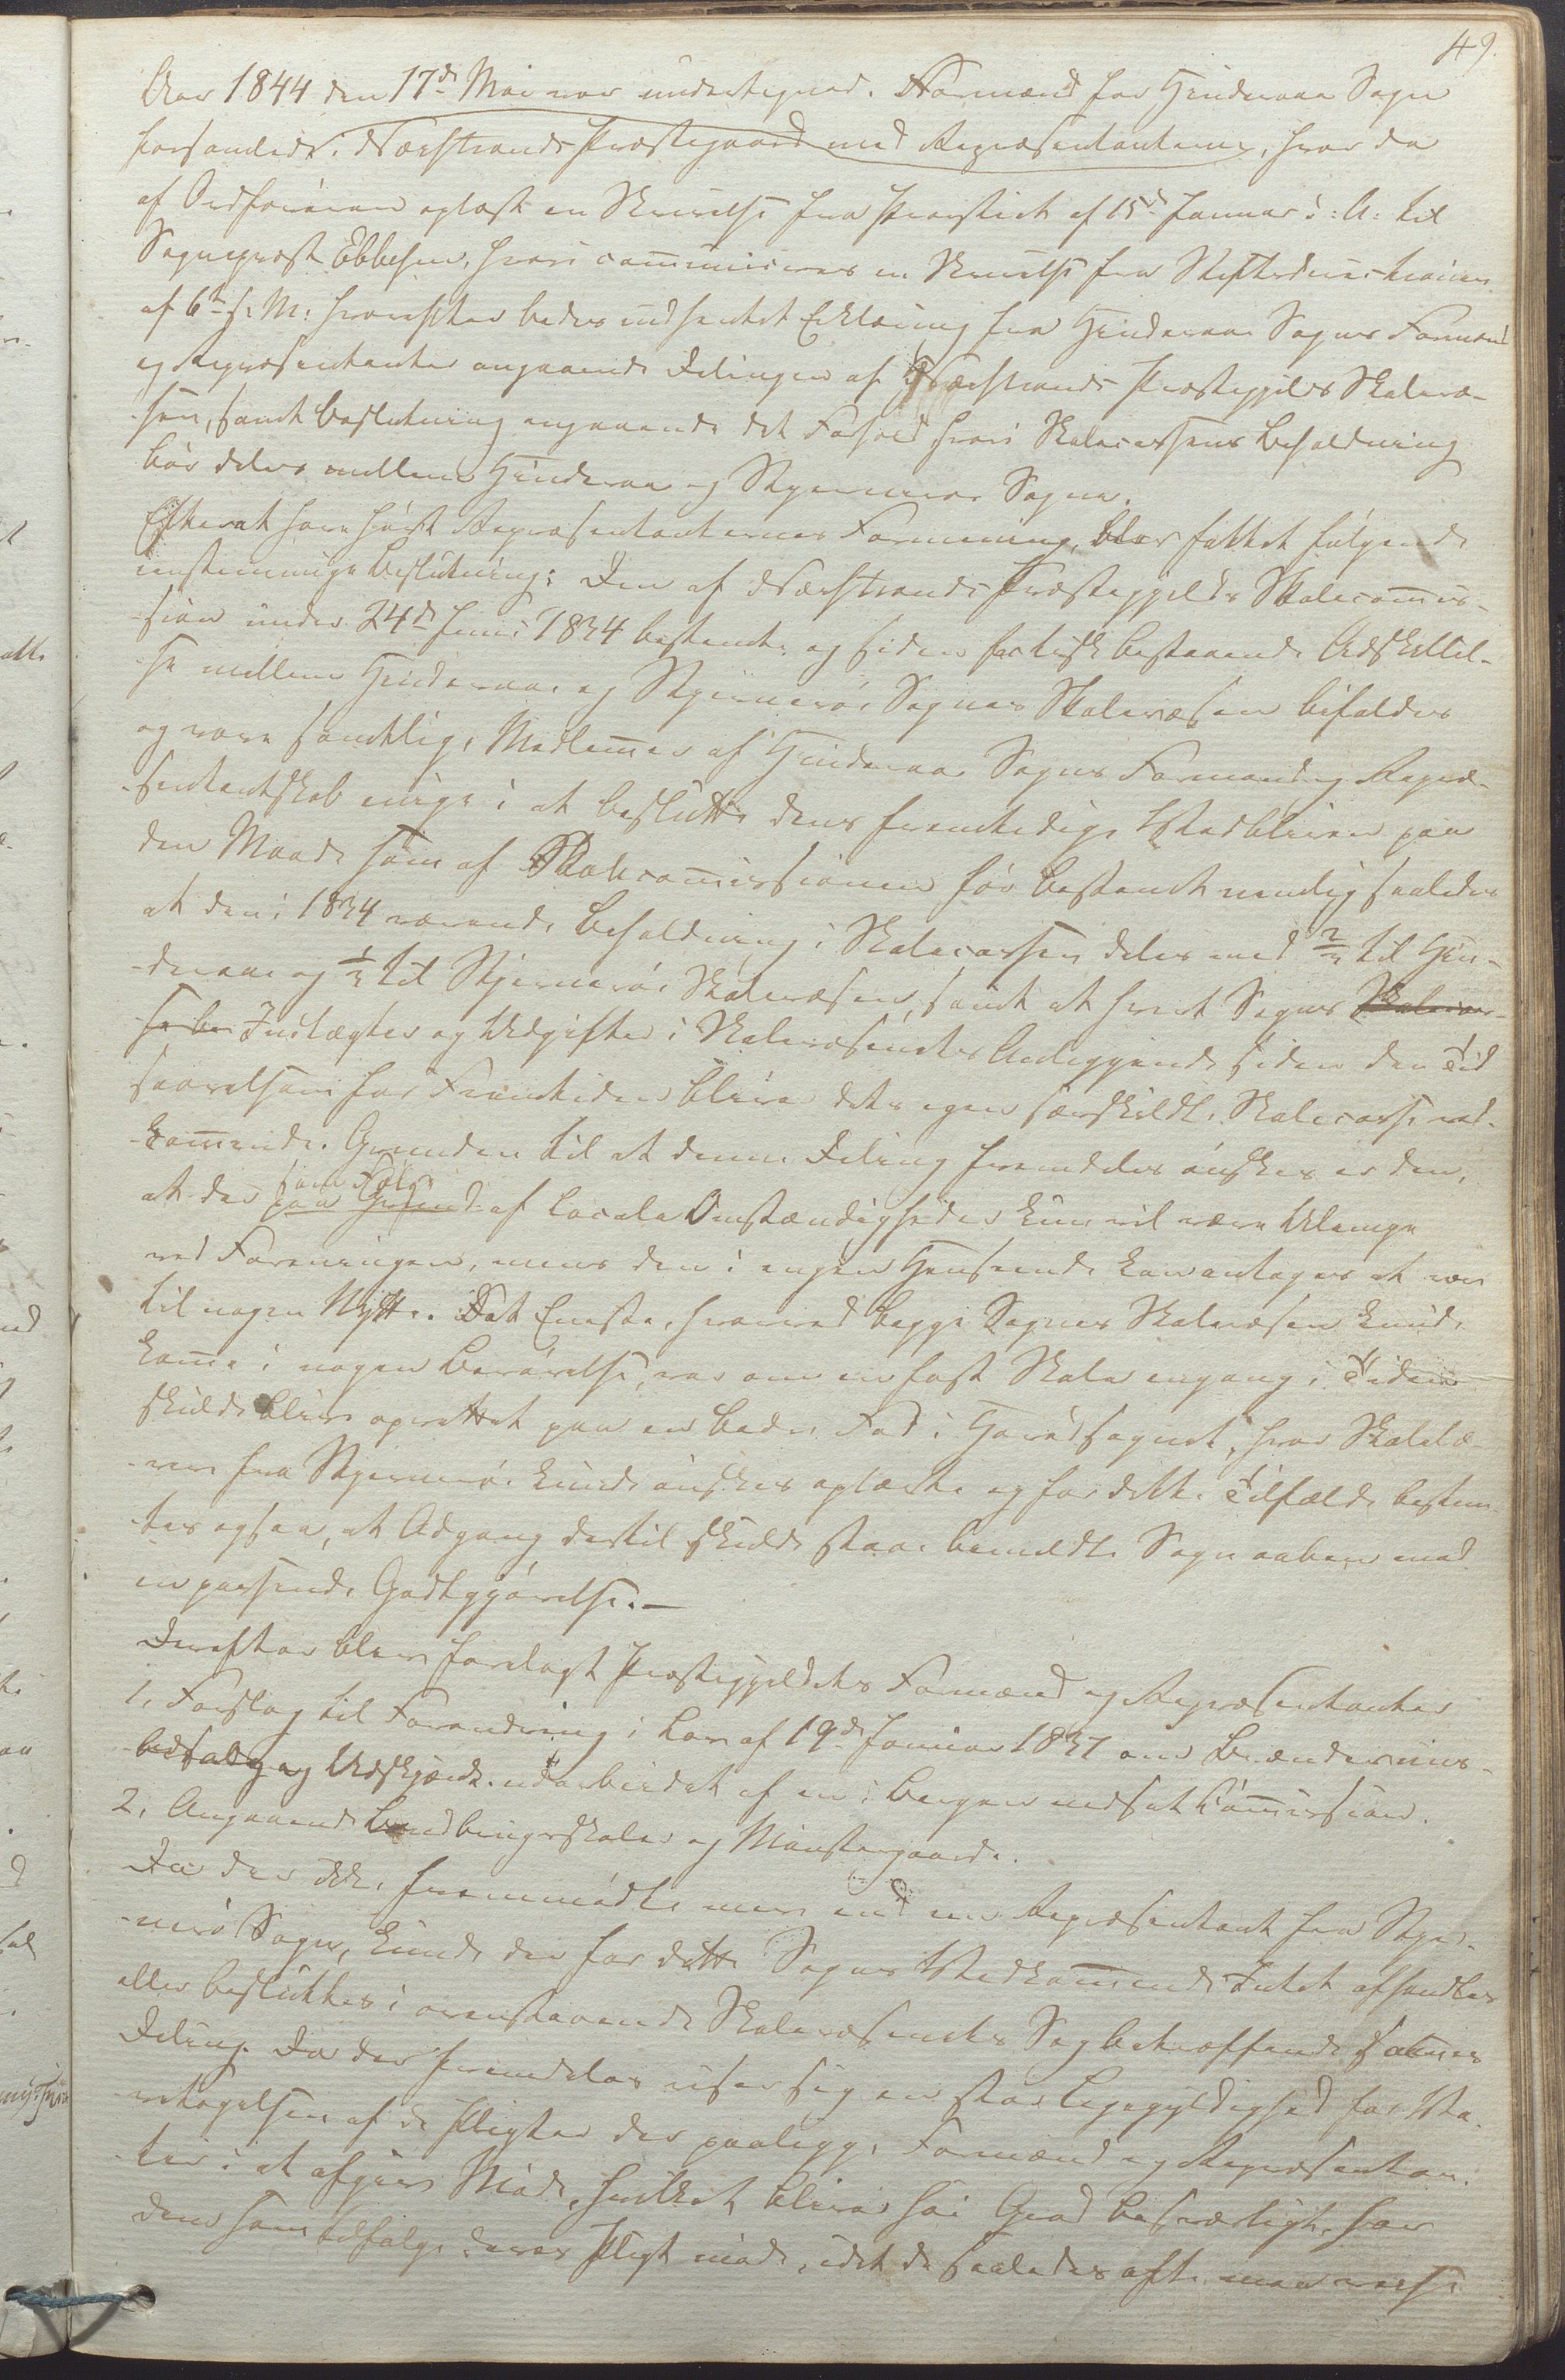 49.
Aar 1844 den 17de Mai var undertegned. Formænd for Hinderaa Sogn
forsamlede i Nærstrands Præstegaard med Repræsentanterne, hvor da
af Ordføreren oplæst en Skrivelse fra Provstiet af 15de Januar d: A: til
Sognepræst Ebbesen, hvori communiceres en Skrivelse fra Stiftsdirectionen
af 6te s: M: hvorefter bedes indhentet Erklæring fra Hinderaa Sogns Formænd
og Repræsentanter angaaende Delingen af Nærstrands Præstegjelds Skolevæ-
sen, samt Beslutning angaaende det Forhold hvori Skolecassens Beholdning
bør deles mellem Hinderaa og Skjernerøe Sogne.
Efterat have hørt Repræsentanternes Formening, blev fattet følgende
eenstemmige Beslutning: Den af Nærstrands Præstegjelds Skolecommis-
sion under 24de Juni 1834 bestemte og siden factisk bestaaende Adskillel-
se mellem Hinderaa og Skjernerøe Sognes Skolevæsen bifaldes
og vare samtlige Medlemmer af Hinderaa Sogns Formænd og Repræ-
sentantskab enige i at beslutte dens fremtidige Vedbliven paa
den Maade som af Skolecommissionen før bestemt nemlig saaledes
at den i 1834 værende Beholdning i Skolecassen deles med 2/3 til Hin-
deraa og 1/3 til Skjernerøe Skolevæsen, samt at hvert Sogns Skolevæ-
sen Indtægter og Udgifter i Skolevæsenets Anliggende siden den Tid
saavelsom for Fremtiden blive dets egen særskildte Skolecasse ved-
kommende. Grunden til at denne Deling fremdeles ønskes er den,
som Følge
at der paa Grund af locale Omstændigheder kun vil være Ulempe
ved Foreningen, mens den i ingen Henseende kan antages at være
til nogen Nytte. Det Eneste, hvorved begge Sognes Skolevæsen kunde
komme i nogen Berørelse, var om en fast Skole engang i Tiden
skulde blive oprettet paa en bedre Fod i Hovedsognet, hvor Skolelæ-
rere fra Skjernerøe kunde ønskes oplærte og for dette Tilfælde bestem-
tes ogsaa, at Adgang dertil skulde staae bemeldte Sogn aaben mod
en passende Godtgjørelse.—
Derefter blev forelagt Præstegjeldets Formænd og Repræsentanter
1, Forslag til Forandring i Lov af 19de Januar 1837 om Brændeviins-
Udsalg og Udskjænkn. udarbeidet af en i Bergen nedsat Commission.
2, Angaaende Landbrugsskoler og Mønstergaarde.
Da der ikke fremmødte mere end een Repræsentant fra Skjer-
nerø Sogn, kunde der for dette Sogns Vedkommende Intet afhandles
eller besluttes i ovenstaaende Skolevæsenets Sag betræffende sammes
Deling. Da der fremdeles viser sig en stor Ligegyldighed for Va-
retagelsen af de Pligter der paaligger Formænd og Repræsentan-
ter i at afgive Møde, hvilket bliver høi Grad besværligt for
dem som ifølge deres Pligt møde, idet de saaledes ofte maa reise